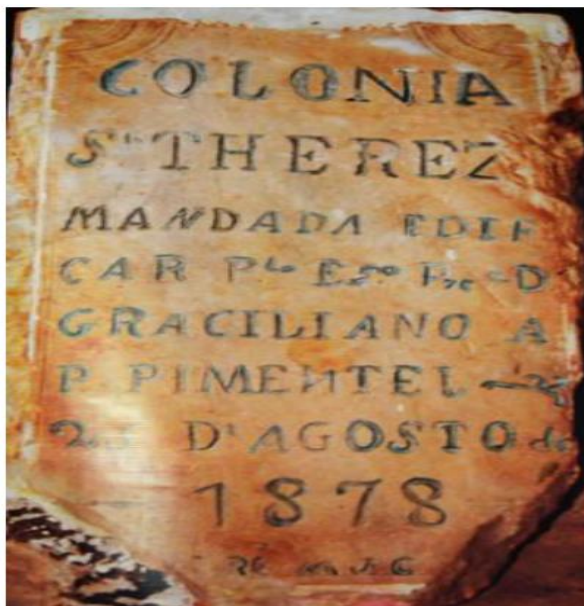 COLONIA
Sta THEREZ
MANDADA EDIF
CAR Plo Exmo Pre D
GRACILIANO A
P PIMENTEL
D'AGOSTO de
1878